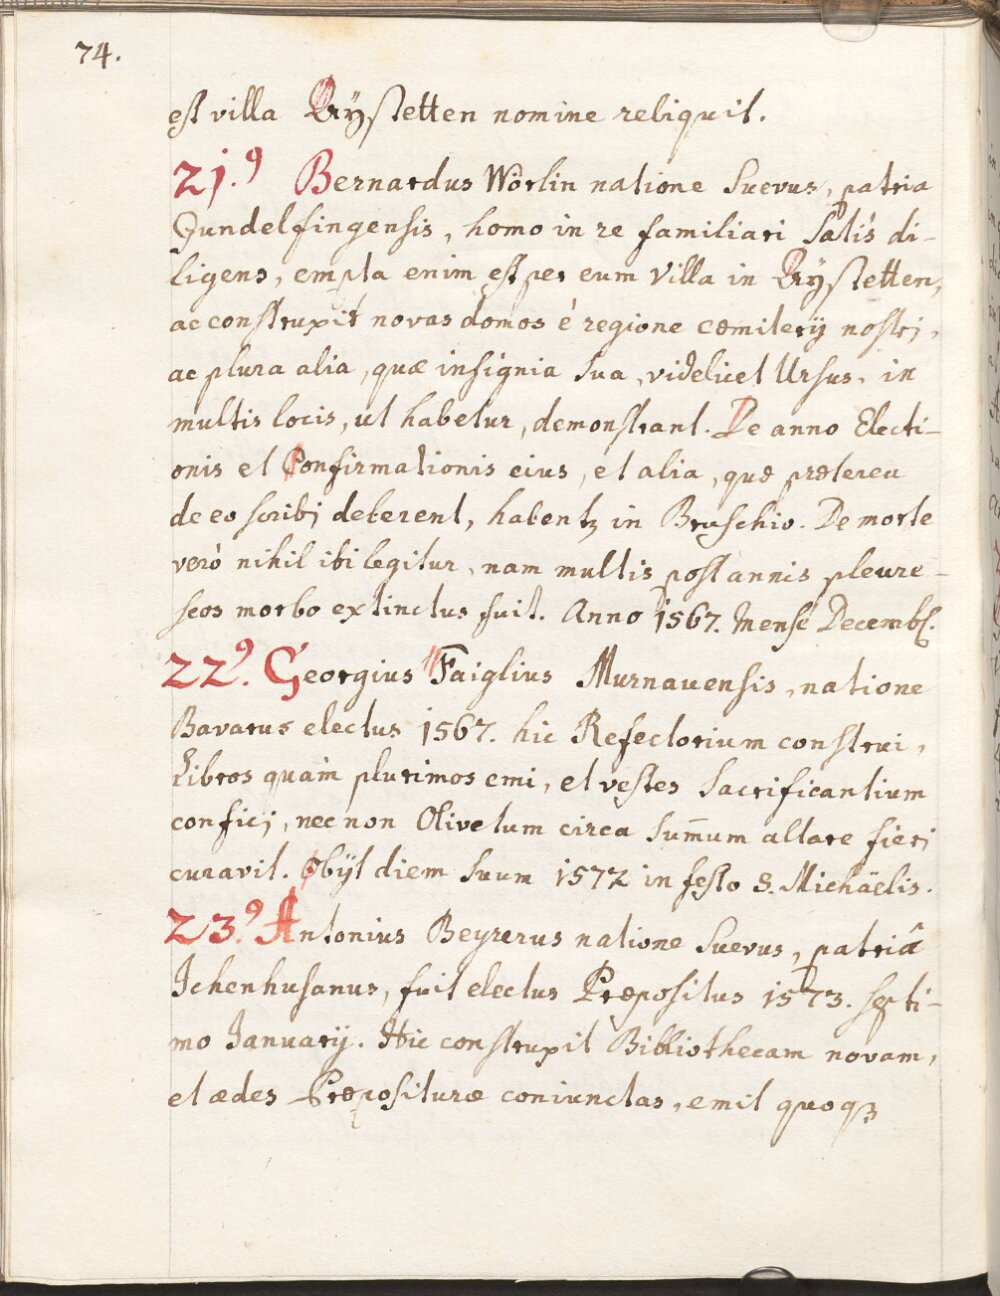 74.
est villa Rÿstetten nomine reliquit.
21.9 Bernardus Wörlin natione Suevus, patria
Gundelfingensis, homo in re familiari Satis di-
ligens, empta enim est per eum Villa in Rÿstetten,
ac construxit novas domos é regione cœmiterij nostrj,
ac plura alia, quæ insignia Sua, videlicet Ursus, in
multis locis, ut habetur, demonstrant. De anno Electi-
onis et Confirmationis eius, et alia, quæ præterea
de eo scribj deberent, habentz in Bruschio. De morte
veró nihil ibi legitur, nam multis post annis pleure-
seos morbo extinctus fuit. Anno 1567. Mense Decemb.
22.9 Georgius Faiglius Murnauensis, natione
Bavarus electus 1567. hic Refectorium construi,
Libros quam plurimos emi, et vestes Sacrificantium
conficj, nec non Olivetum circa Sum̄um altare fierj
curavit. Obÿt diem Suum 1572 in festo S. Michäelis.
23.9 Antonius Beyrerus natione Suevus, patriâ
Ichenhusanus, fuit electus Præpositus 1573. septi-
mo Januarij. Hic construxit Bibliothecam novam,
et ædes Præposituræ coniunctas, emit quoqꝫ